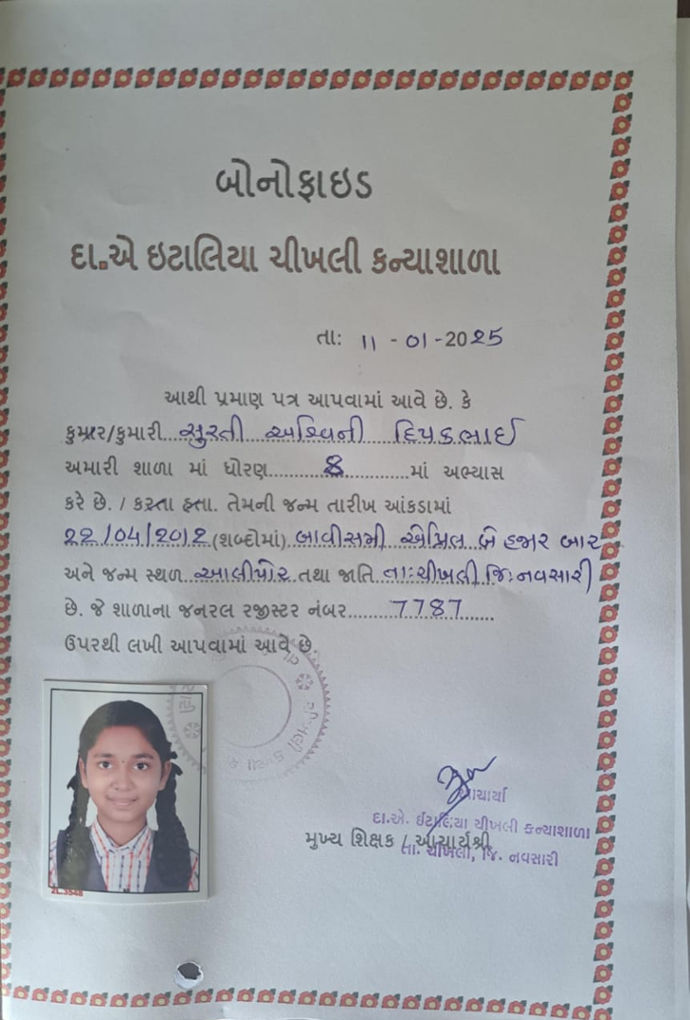 બોનોફાઇડ
દા.એ ઇટાલિયા ચીખલી કન્યાશાળા
તા: 11 - 01 - 2025
આથી પ્રમાણ પત્ર આપવામાં આવે છે. કે
કુમાર/કુમારી સુરતી અશ્વિની દિપકભાઈ
અમારી શાળા માં ધોરણ 8 માં અભ્યાસ
કરે છે. / કરતા હતા. તેમની જન્મ તારીખ આંકડામાં
22/04/2012 (શબ્દોમાં) બાવીસમી એપ્રિલ બે હજાર બાર
અને જન્મ સ્થળ આલીપોર તથા જાતિ તા:ચીખલી જિ:નવસારી
છે. જે શાળાના જનરલ રજીસ્ટર નંબર 7787
ઉપરથી લખી આપવામાં આવે છે.
આચાર્યા
દા.એ. ઈટાલિયા ચીખલી કન્યાશાળા
મુખ્ય શિક્ષક / આચાર્યશ્રી
તા. ચીખલી, જિ. નવસારી